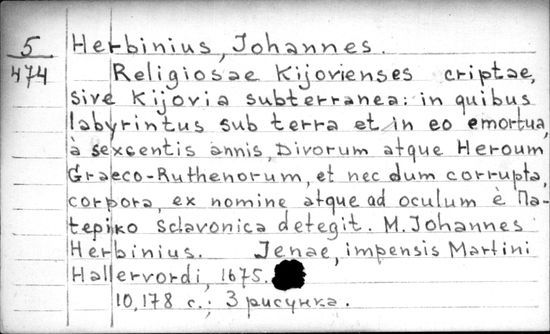 5
474
Herbinius, Johannes.
Religiosae Kijovienses criptae,
sive Kijovia subterranea: in quibus
labyrintus sub terra et in eo emortua,
à sexcentis annis, Divorum atque Heroum
Graeco-Ruthenorum, et nec dum corrupta,
corpora, ex nomine atque ad oculum è Па-
терiко Sclavonica detegit. M. Johannes
Herbinius. Jenae, impensis Martini
Hallervordi, 1675.
10, 178 с.; 3 рисунка.